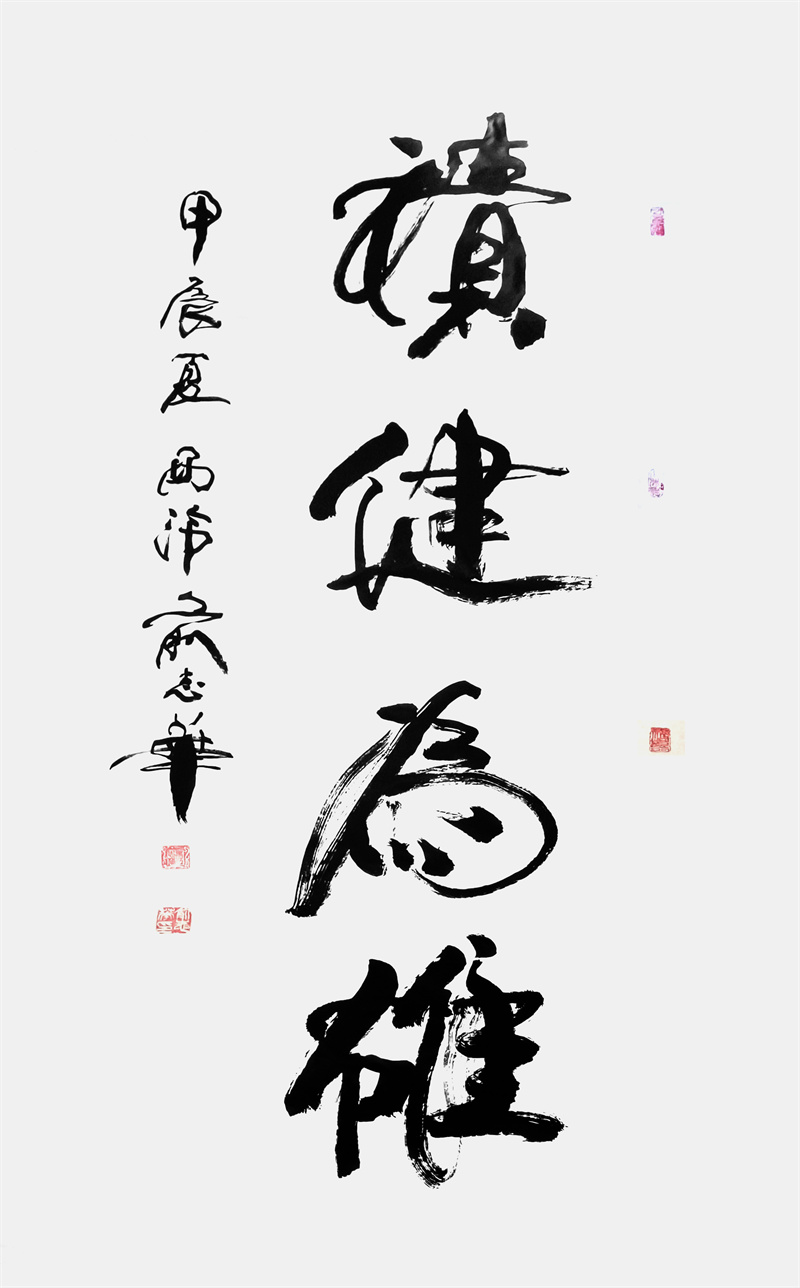 積健為雄
甲辰夏 西泠俞志華